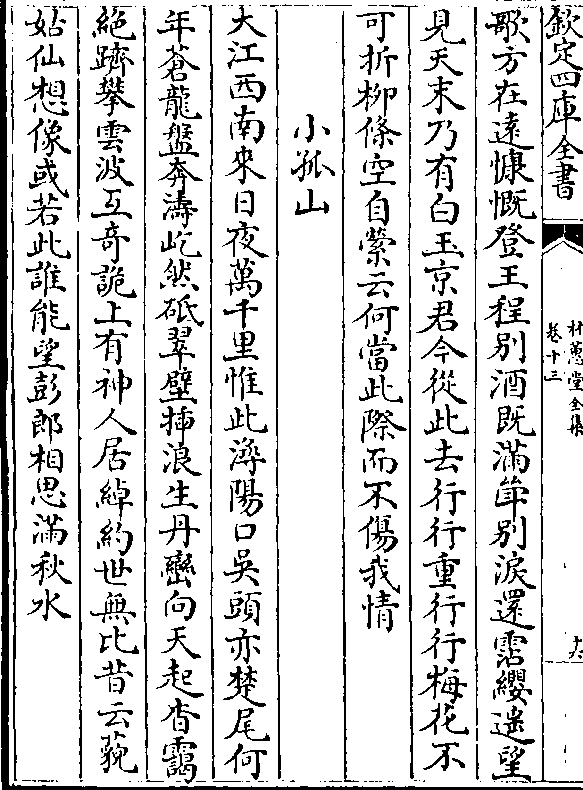 欽定四庫全書
林蕙堂全集
卷十三
歌方在遠慷慨登王程别酒既滿罇别淚還霑纓遥望
見天末乃有白玉京君今從此去行行重行行梅花不
可折柳條空自縈云何當此際而不傷我情
小孤山
大江西南來日夜萬千里惟此潯陽口吳頭亦楚尾何
年蒼龍盤奔濤屹然砥翠壁插浪生丹巒向天起杳靄
絶躋攀雲波互奇詭上有神人居綽約世無比昔云藐
姑仙想像或若此誰能望彭郎相思滿秋水